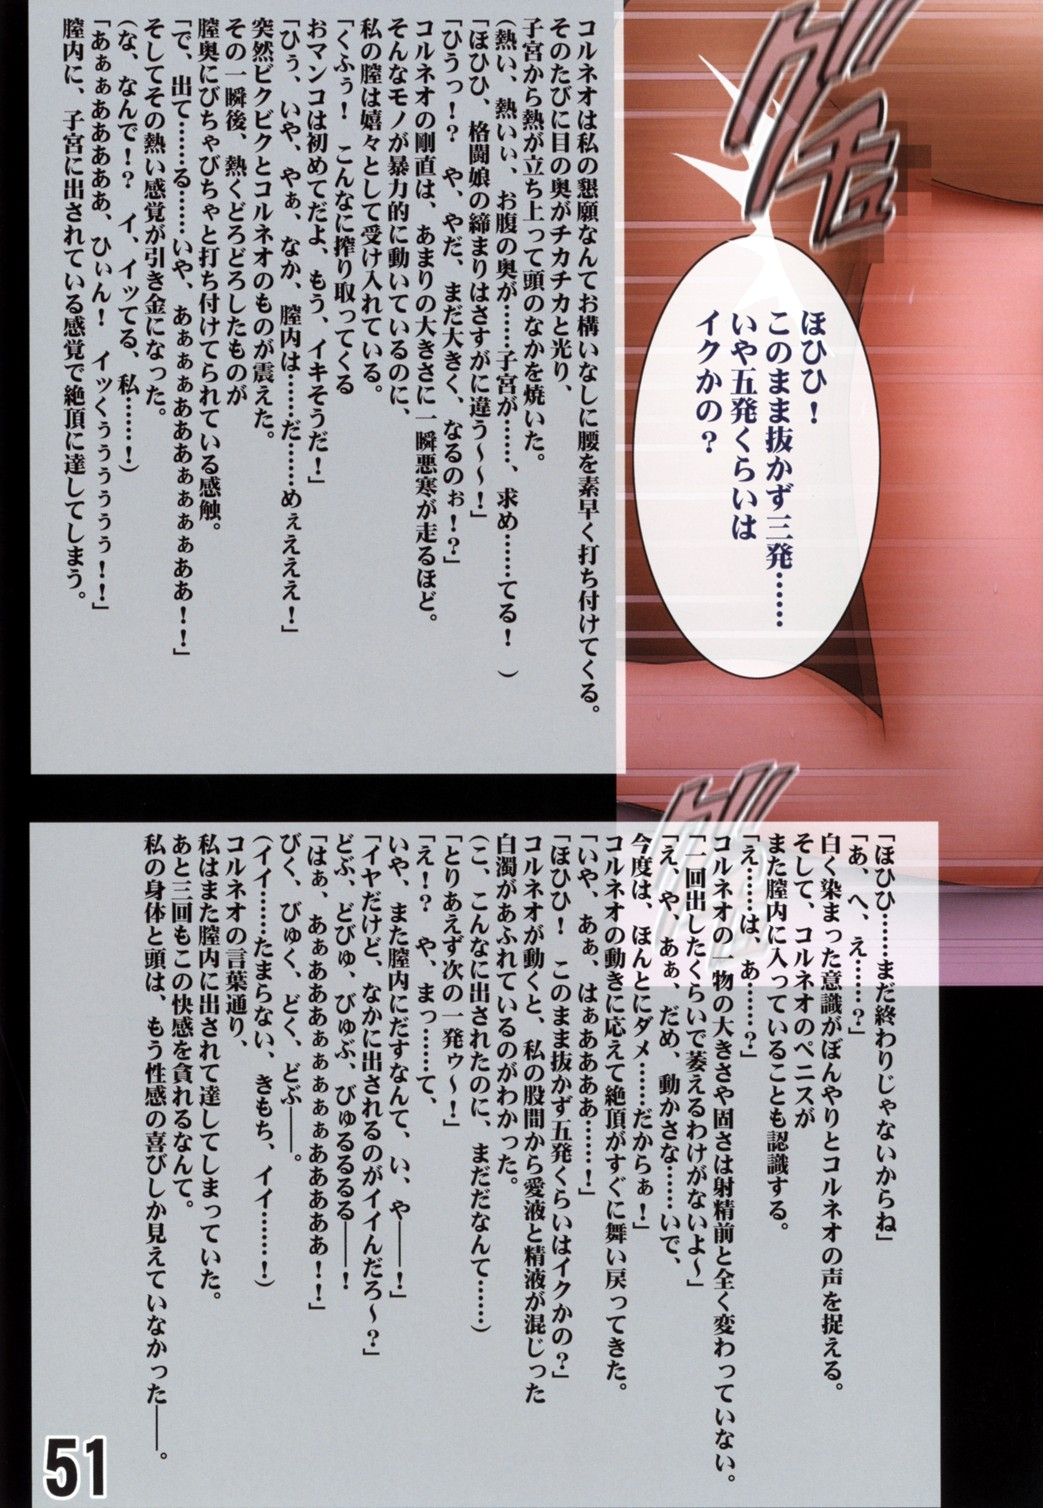 グチュ
ほひひ！
このまま抜かず三発……
いや五発くらいは
イクかの？
コルネオは私の懇願なんてお構いなしに腰を素早く打ち付けてくる。
そのたびに目の奥がチカチカと光り、
子宮から熱が立ち上って頭のなかを焼いた。
（熱い、熱いぃ、お腹の奥が……子宮が……、求め……てる！　）
「ほひひ、格闘娘の締まりはさすがに違う～～！」
「ひうっ！？　や、やだ、まだ大きく、なるのぉ！？」
コルネオの剛直は、あまりの大きさに一瞬悪寒が走るほど。
そんなモノが暴力的に動いているのに、
私の膣は嬉々として受け入れている。
「くふぅ！　こんなに搾り取ってくる
おマンコは初めてだよ、もう、イキそうだ！」
「ひぅ、いや、やぁ、なか、膣内は……だ……めぇえええ！」
突然ビクビクとコルネオのものが震えた。
その一瞬後、熱くどろどろしたものが
膣奥にびちゃびちゃと打ち付けてられている感触。
「で、出て……る……いや、あぁぁぁああああぁぁぁぁああ！！」
そしてその熱い感覚が引き金になった。
（な、なんで！？　イ、イッてる、私……！）
「あぁぁああああああ、ひぃん！　イッくぅぅぅぅぅぅ！！」
膣内に、子宮に出されている感覚で絶頂に達してしまう。
「ほひひ……まだ終わりじゃないからね」
「あ、へ、え……？」
白く染まった意識がぼんやりとコルネオの声を捉える。
そして、コルネオのペニスが
また膣内に入っていることも認識する。
「え……は、あ……？」
コルネオの一物の大きさや固さは射精前と全く変わっていない。
「一回出したくらいで萎えるわけがないよ～」
「え、や、あぁ、だめ、動かさな……いで、
今度は、ほんとにダメ……だからぁ！」
コルネオの動きに応えて絶頂がすぐに舞い戻ってきた。
「いや、あぁ、はぁああああ……！」
「ほひひ！　このまま抜かず五発くらいはイクかの？」
コルネオが動くと、私の股間から愛液と精液が混じった
白濁があふれているのがわかった。
（こ、こんなに出されたのに、まだだなんて……）
「とりあえず次の一発ゥ～！」
「え！？　や、まっ……て、
いや、また膣内にだすなんて、い、や――！」
「イヤだけど、なかに出されるのがイイんだろ～？」
どぶ、どびゅ、びゅぶ、びゅるるるる――！
「はぁ、あぁあああぁぁぁぁぁああああああ！！」
びく、びゅく、どく、どぶ――。
（イイ……たまらない、きもち、イイ……！）
コルネオの言葉通り、
私はまた膣内に出されて達してしまっていた。
あと三回もこの快感を貪れるなんて。
私の身体と頭は、もう性感の喜びしか見えていなかった――。
51